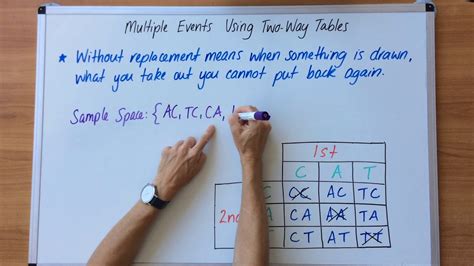 Multiple Events Using Two-Way Tables
★ Without replacement means when something is drawn,
what you take out you cannot put back again.
Sample Space: {AC, TC, CA,
1st
C A T
CC AC TC
2nd CA AA TA
CT AT TT